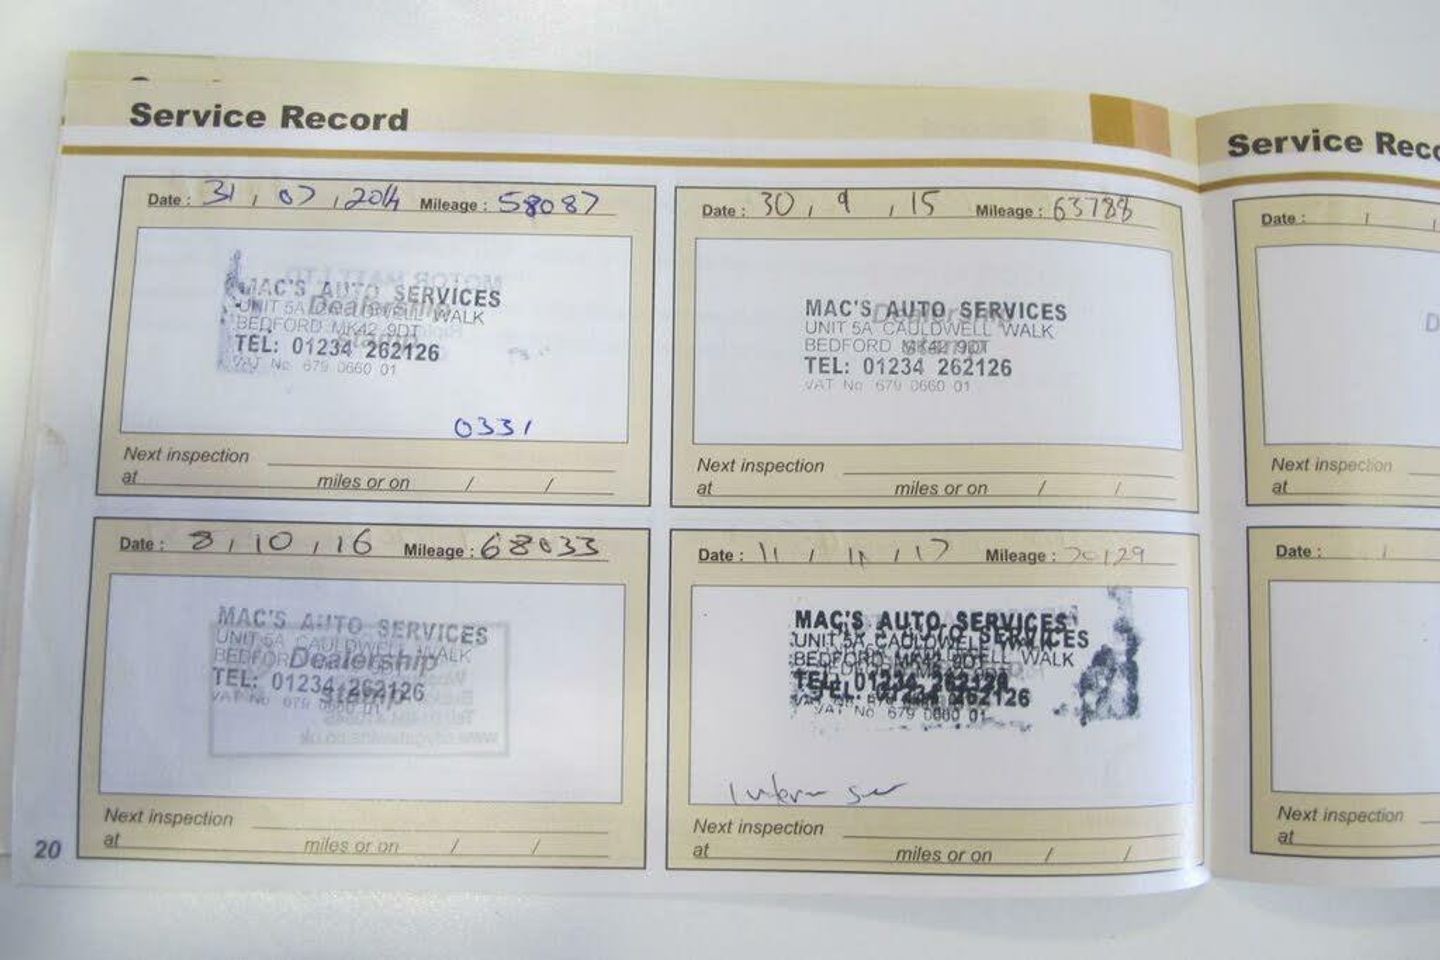 Service Record
Date : 31 / 07 / 2014 Mileage : 58087
MAC'S AUTO SERVICES
UNIT 5A CAULDWELL WALK
BEDFORD MK42 9DT
TEL: 01234 262126
VAT No 679 0660 01
Dealership
Stamp
0331
Next inspection
at miles or on / /
Date : 30 / 9 / 15 Mileage : 63788
MAC'S AUTO SERVICES
UNIT 5A CAULDWELL WALK
BEDFORD MK42 9DT
TEL: 01234 262126
VAT No 679 0660 01
Dealership
Stamp
Next inspection
at miles or on / /
Date : 8 / 10 / 16 Mileage : 68033
MAC'S AUTO SERVICES
UNIT 5A CAULDWELL WALK
BEDFORD
TEL: 01234 262126
VAT No 679 0660 01
Dealership
Stamp
Next inspection
at miles or on / /
Date : 11 / 11 / 17 Mileage : 70129
MAC'S AUTO SERVICES
UNIT 5A CAULDWELL WALK
BEDFORD MK42 9DT
TEL: 01234 262126
VAT No 679 0660 01
Next inspection
at miles or on / /
20
Service Reco
Date : / /
D
Next inspection
at
Date : /
Next inspection
at